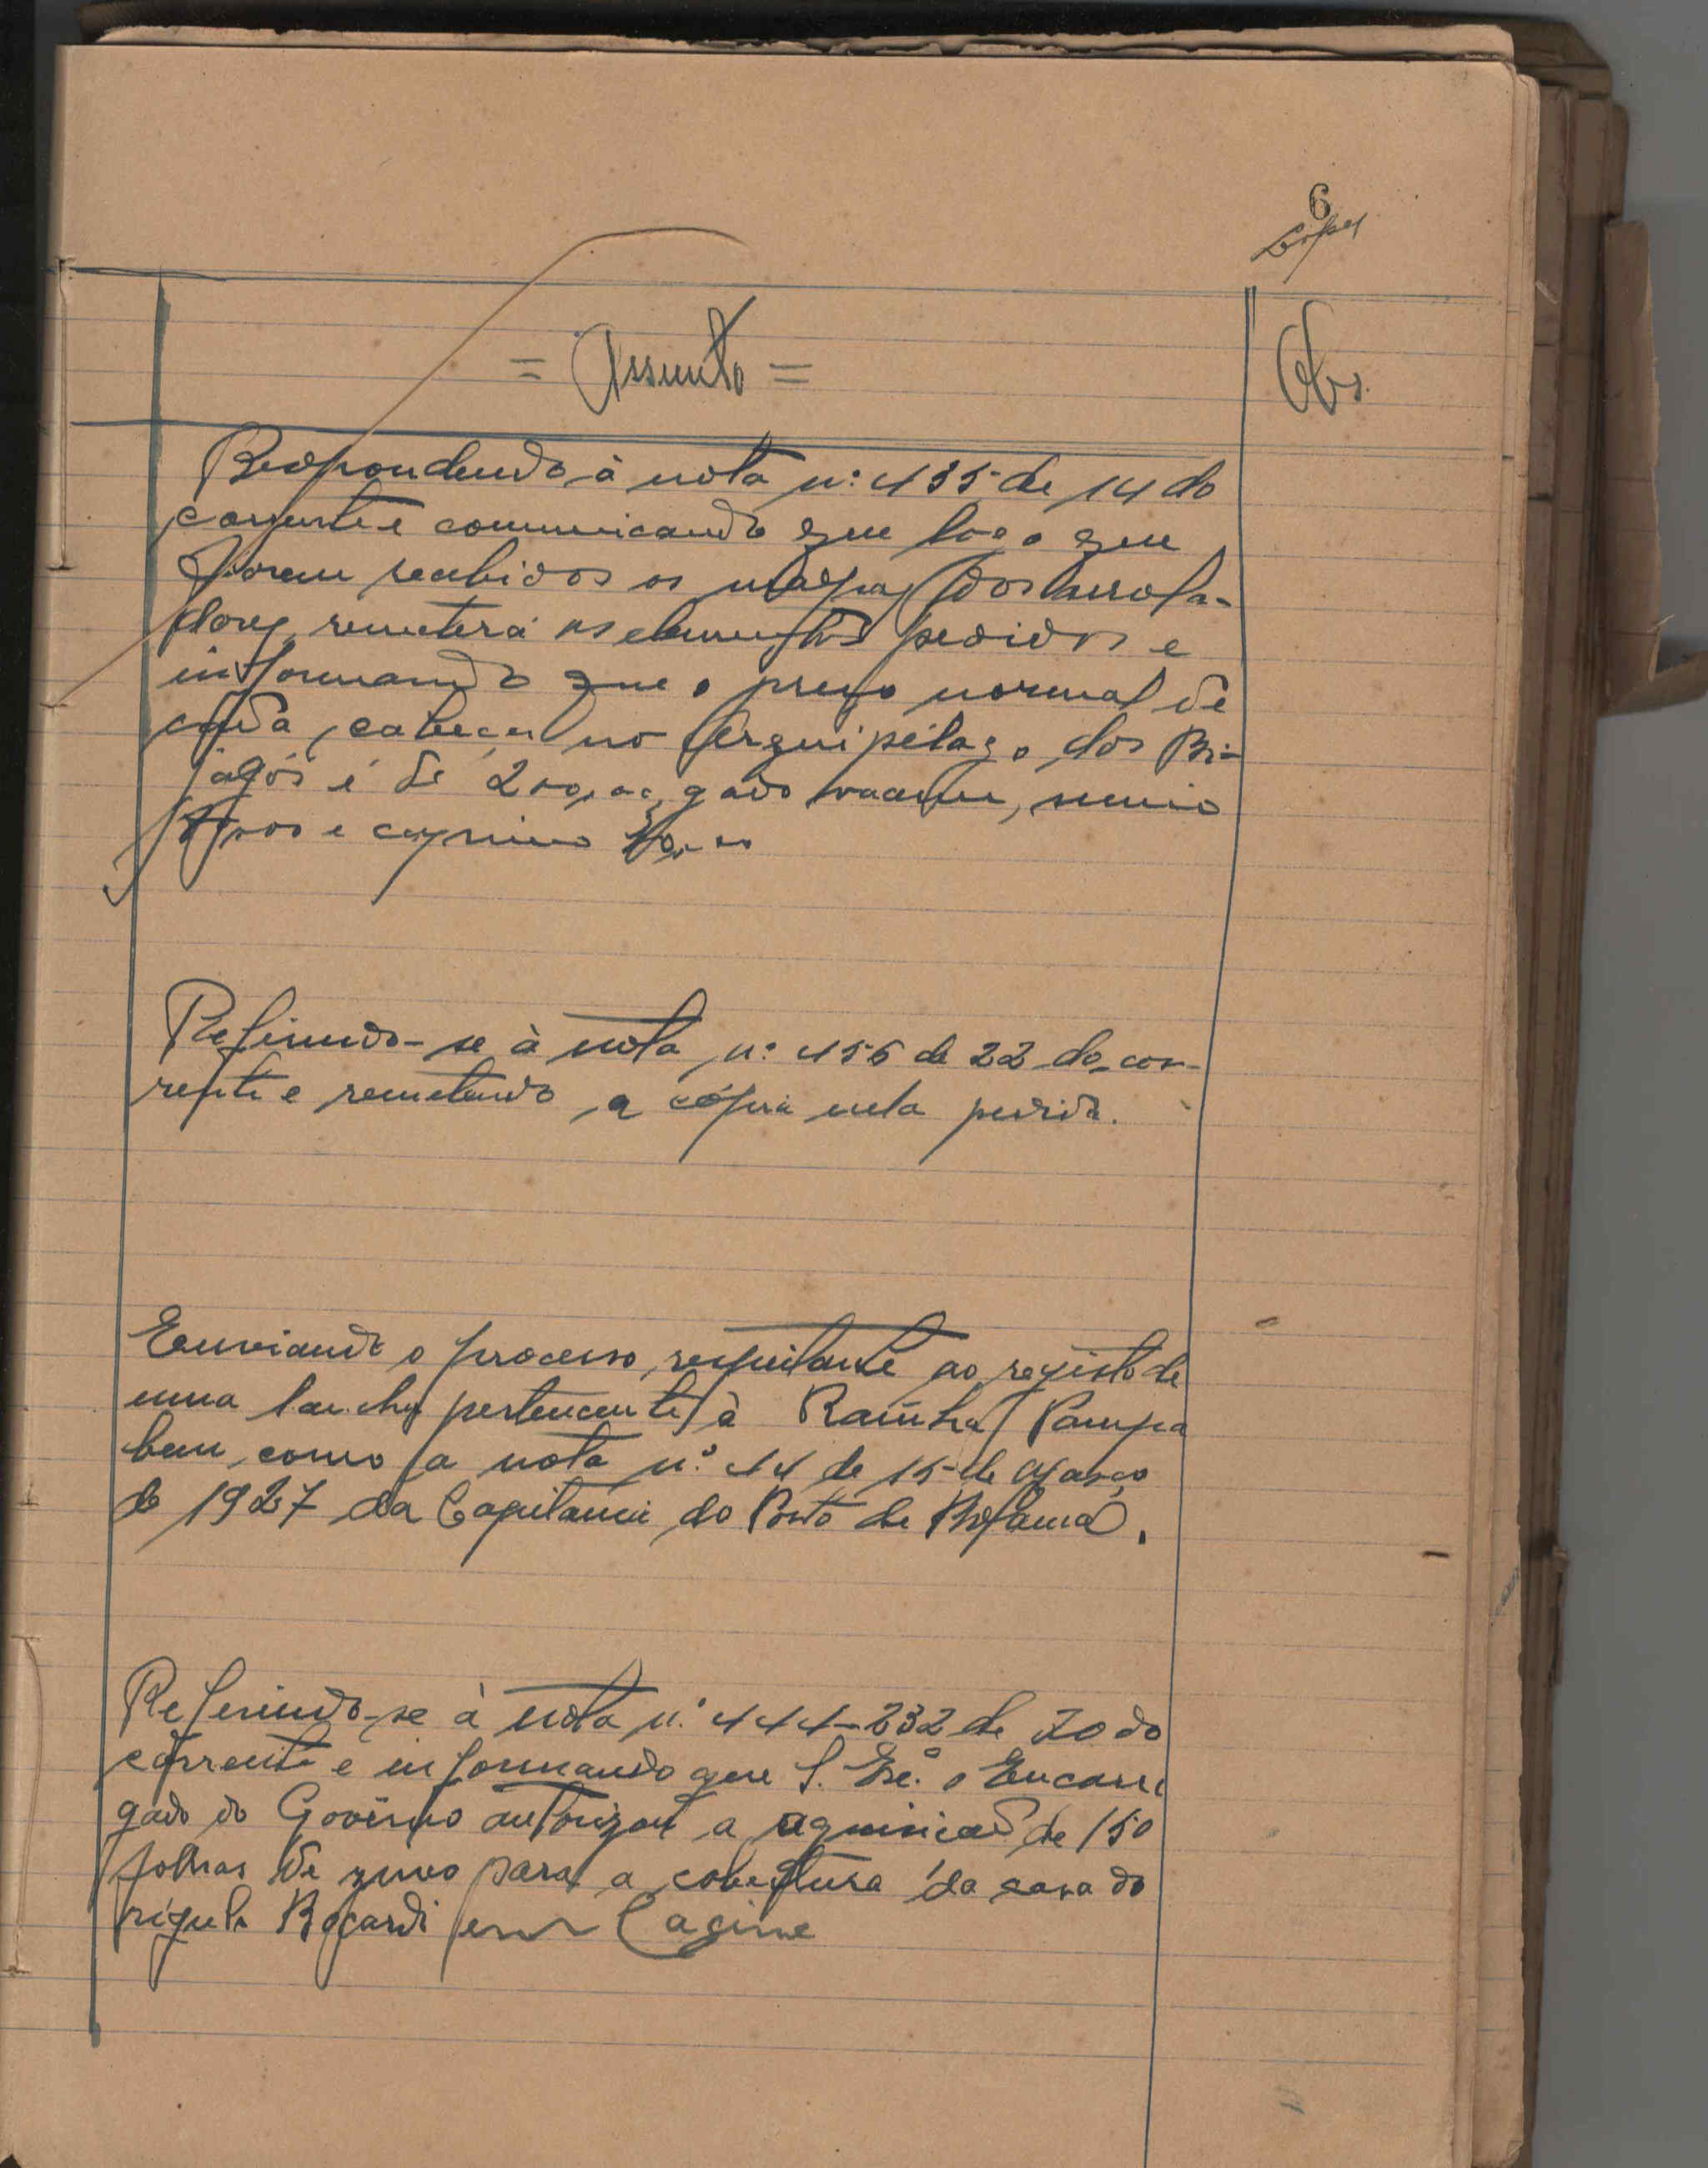 6
Lopes
= Assunto =
Obs.
Respondendo à nota n.º 435 de 14 do
corrente e communicando que logo que
forem recebidos os mapas dos arrola-
dores, remeterá os elementos pedidos e
informando que o preço normal de
cada cabeça no Arquipélago dos Bi-
jagós é de 200,00 gado vacum, suino
e caprino
Referindo-se à nota n.º 456 de 22 do cor-
rente e remetendo a cópia nela pedida.
Enviando o processo respeitante ao registo de
uma lancha pertencente à Rainha Pampa
bem como a nota n.º 44 de 15 de Março
de 1927 da Capitania do Porto de Bolama.
Referindo-se à nota n.º 444-232 de 20 do
corrente e informando que S. Exª. o Encarre
gado do Govêrno autorizou a aquisicão de 150
folhas de zinco para a cobertura da casa do
régulo Bacardi em Cacine